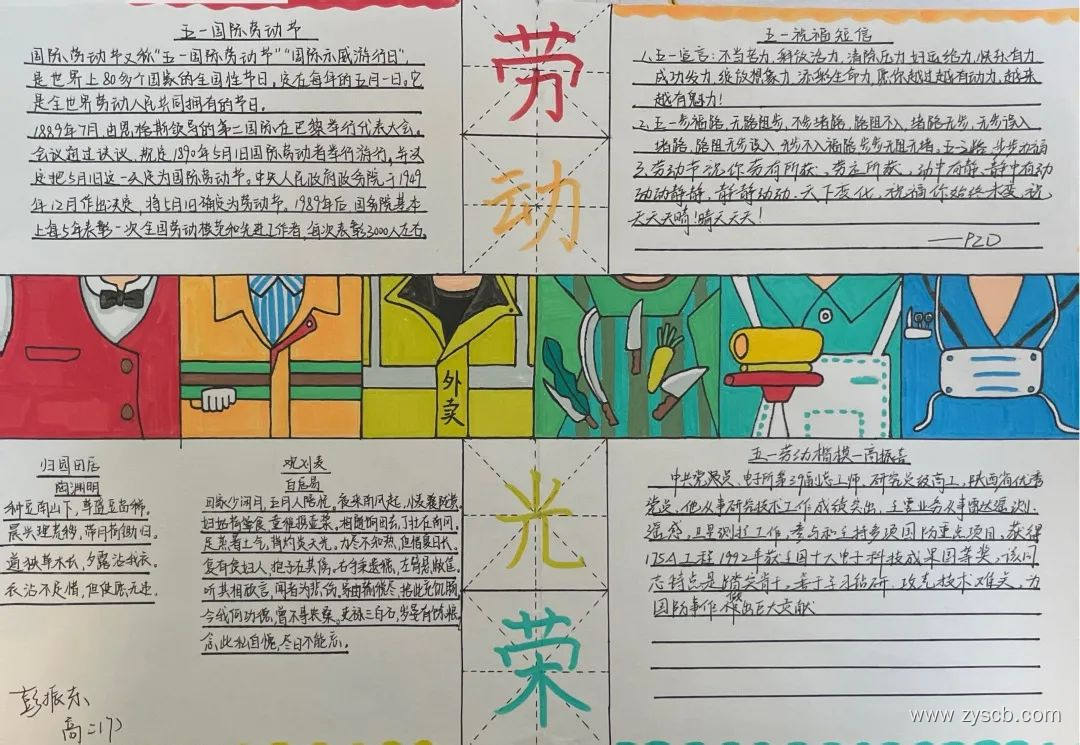 五一国际劳动节
国际劳动节又称"五一国际劳动节""国际示威游行日",
是世界上80多个国家的全国性节日。定在每年的五月一日。它
是全世界劳动人民共同拥有的节日。
1889年7月,由恩格斯领导的第二国际在巴黎举行代表大会。
会议通过决议,规定1890年5月1日国际劳动者举行游行,并决
定把5月1日这一天定为国际劳动节。中央人民政府政务院于1949
年12月作出决定,将5月1日确定为劳动节。1989年后,国务院基本
上每5年表彰一次全国劳动模范和先进工作者,每次表彰3000人左右。
劳
动
五一祝福短信
1.五一宣言:不当苦力,释放活力,清除压力
成功发力,绽放想象力,添彩生命力,愿你越过越有动力,越来
越有魅力!
2.五一步福路,无路阻步,不步堵路,路阻不入,堵路无步,无步误入
堵路,路阻无步误入
劳动节祝你劳有所获,劳定所获,动中有静,静中有动
动动静静,静静动动,天下变化,祝福你始终未变,祝
天天天晴!晴天天天!
——PZD
外卖
归园田居
陶渊明
种豆南山下,草盛豆苗稀。
晨兴理荒秽,带月荷锄归。
道狭草木长,夕露沾我衣。
衣沾不足惜,但使愿无违
观刈麦
白居易
田家少闲月,五月人倍忙。夜来南风起,小麦覆陇黄。
妇姑荷箪食,童稚携壶浆,相随饷田去,丁壮在南冈。
足蒸暑土气,背灼炎天光。力尽不知热,但惜夏日长。
复有贫妇人,抱子在其旁,右手秉遗穗,左臂悬敝筐。
听其相顾言,闻者为悲伤。家田输税尽,拾此充饥肠。
今我何功德,曾不事农桑。吏禄三百石,岁晏有余粮。
念此私自愧,尽日不能忘。
光
荣
五一劳动楷模—高振喜
中共党员、电子所第39届志工师,研究员级高工,陕西省优秀
党员,他从事研究技术工作成绩突出,主要业务从事雷达遥测、
遥感,卫星测控工作,参与和主持多项国防重点项目,获得
175A工程1992年获全国十大电子科技成果国等奖,该同
志特点是踏实肯干,善于学习钻研,攻克技术难关,为
国防事作做出巨大贡献
彭振东
高二(17)
www.zyscb.com